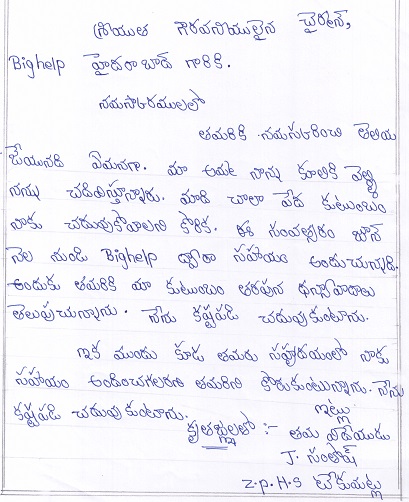 శ్రీయుత గౌరవనీయులైన ఛైర్మన్,
Bighelp హైదరాబాద్ గారికి.
నమస్కారములతో
తమరికి నమస్కరించి తెలియ
జేయునది ఏమనగా. మా అమ్మ నాన్న కూలికి వెళ్ళి
నన్ను చదివిస్తున్నారు. మాది చాలా పేద కుటుంబం
నాకు చదువుకోవాలని కోరిక. ఈ సంవత్సరం జూన్
నెల నుండి Bighelp ద్వారా సహాయం అందుచున్నది.
అందుకు తమరికి మా కుటుంబం తరపున ధన్యావాదాలు
తెలుపుచున్నాను. నేను కష్టపడి చదువుకుంటాను.
ఇక ముందు కూడ తమరు సహృదయంలో నాకు
సహాయం అందించగలరని తమరిని కోరుకుంటున్నాను. నేను
కష్టపడి చదువుకుంటాను.
ఇట్లు
కృతజ్ఞతలతో :- తమ విదేయుడు
J. సంతోష్
Z.P.H.S టేకుమట్ల